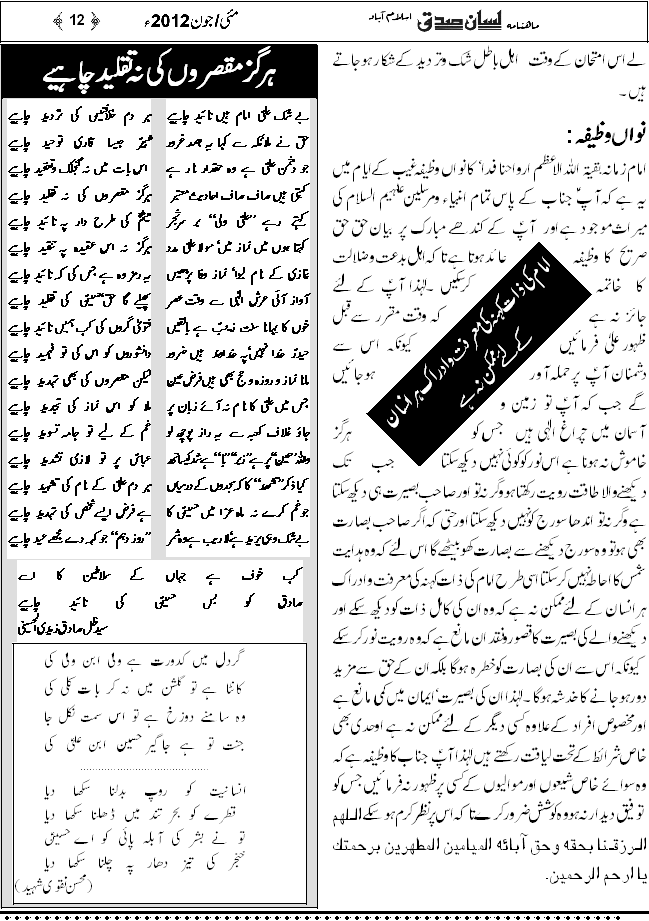 ماہنامہ لسان صدق اسلام آباد
مئی/جون 2012ء
﴿ 12 ﴾
لے اس امتحان کے وقت اہل باطل شک و تردید کے شکار ہو جاتے
ہیں۔
نواں وظیفہ:
امام زمانہ بقیۃ اللہ الاعظم ارواحنا فداہ کا نواں وظیفہ غیب کے ایام میں
یہ ہے کہ آپؑ جناب کے پاس تمام انبیاء و مرسلین علیہم السلام کی
میراث موجود ہے اور آپؑ کے کندھے مبارک پر بیان حق حق
صریح کا وظیفہ عائد ہوتا ہے تاکہ اہل بدعت و ضلالت
کا خاتمہ کر سکیں۔ لہٰذا آپؑ کے لئے
جائز نہ ہے کہ وقت مقرر سے قبل
ظہور علیٰ فرمائیں کیونکہ اس سے
دشمنان آپؑ پر حملہ آور ہو جائیں
گے جب کہ آپؑ تو زمین و
آسمان میں چراغ الٰہی ہیں جس کو ہرگز
خاموش نہ ہونا ہے اس نور کو کوئی نہیں دیکھ سکتا جب تک
دیکھنے والا طاقت رویت رکھتا ہو وگرنہ تو اور صاحب بصیرت ہی دیکھ سکتا
ہے وگرنہ تو اندھا سورج کو نہیں دیکھ سکتا اور حتیٰ کہ اگر صاحب بصارت
بھی ہو تو وہ سورج دیکھنے سے بصارت کھو بیٹھے گا اس لئے کہ وہ ہدایت
شمس کا احاطہ نہیں کر سکتا اسی طرح امام کی ذات کہنہ کی معرفت و ادراک
ہر انسان کے لئے ممکن نہ ہے کہ وہ ان کی کامل ذات کو دیکھ سکے اور
دیکھنے والے کی بصیرت کا قصور و فقدان مانع ہے کہ وہ رویت نور کر سکے
کیونکہ اس سے ان کی بصارت کو خطرہ ہو گا بلکہ ان کے حق سے مزید
دور ہو جانے کا خدشہ ہو گا۔ لہٰذا ان کی بصیرت ایمان میں کمی مانع ہے
اور مخصوص افراد کے علاوہ کسی دیگر کے لئے ممکن نہ ہے اوحدی بھی
خاص شرائط کے تحت لیاقت رکھتے ہیں لہٰذا آپؑ جناب کا وظیفہ ہے کہ
وہ سوائے خاص شیعوں اور موالیوں کے کسی پر ظہور نہ فرمائیں جس کو
توفیق دیدار نہ ہو وہ کوشش ضرور کرے تاکہ اس پر نظر کرم ہو سکے اللهم
الرزقنا بحقه وحق آبائه الميامين المطهرين برحمتك
يا ارحم الرحمين.
امام کی ذات کہنہ کی معرفت و ادراک ہر انسان
کے لئے ممکن نہ ہے
ہرگز مقصروں کی نہ تقلید چاہیے
بے شک علیؑ امام ہیں تائید چاہیے ہر دم کی تردید چاہیے
حق نے ملائکہ سے کہا یہ بصد غرور جیسا قاری توحید چاہیے
جو دشمن علیؑ ہے وہ حقدار نار ہے اس بات میں نہ گنجلک و تنقید چاہیے
کہتی ہیں صاف صاف احادیث معتبر ہرگز مقصروں کی نہ تقلید چاہیے
کہتے رہے ”علیؑ ولی“ بر سر شجر میثمؑ کی طرح دار پہ تائید چاہیے
کہتا ہوں میں نماز میں مولا علیؑ مدد ہرگز نہ اس عقیدہ پہ تنقید چاہیے
غازی کے نام لیوا نماز وفا پڑھیں یہ رمز وہ ہے جس کی کہ تائید چاہیے
آواز آئی عرش الٰہی سے وقت عصر حق حسینی کی تقلید چاہیے
خوں کا بہانا سنت مذہب ہے بالیقیں فتویٰ گروں کی کب ہمیں تائید چاہیے
حیدرؑ خدا نہیں پہ خدا ضرور دانشوروں کو اس کی تو فہمید چاہیے
مانا نماز و روزہ و حج بھی ہیں فرض عین لیکن مقصروں کی بھی تہدید چاہیے
جس میں علیؑ کا نام نہ آئے زبان پر ملا کو اس نماز کی تجدید چاہیے
جاؤ غلاف کعبہ سے یہ راز پوچھ لو غم کے لیے تو جامہ تسوید چاہیے
عباسؑ پر تو لازی تشدید چاہیے
ہر دم علیؑ کے نام کی تشہید چاہیے
جو غم کرے نہ ماہ عزا میں حسینؑ کا ہے فرض ایسے شخص کی تہدید چاہیے
بے شک وہی یزید ہے لاریب ہے وہ شر ”روز دہم“ جو کہہ دے مجھے عید چاہیے
کب خوف ہے جہاں کے سلاطین کا اے
صادق کو بس حسینؑ کی تائید چاہیے
سید ظل صادق زیدی الحسینی
گر دل میں کدورت ہے ولی ابن ولی کی
کانٹا ہے تو گلشن میں نہ کر بات کلی کی
وہ سامنے دوزخ ہے تو اس سمت نکل جا
جنت تو ہے جاگیر حسین ابن علیؑ کی
انسانیت کو روپ بدلنا سکھا دیا
قطرے کو بحر تند میں ڈھلنا سکھا دیا
تو نے بشر کی آبلہ پائی کو اے حسینؑ
خنجر کی تیز دھار پہ چلنا سکھا دیا
(محسن نقوی شہید)